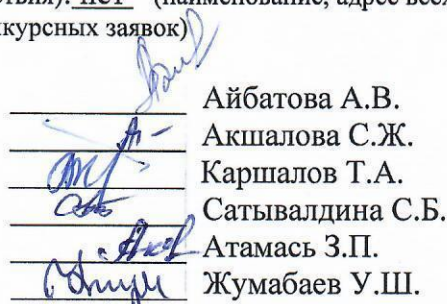 нет (наименование, адрес
конкурсных заявок)
Айбатова А.В.
Акшалова С.Ж.
Каршалов Т.А.
Сатывалдина С.Б.
Атамась З.П.
Жумабаев У.Ш.